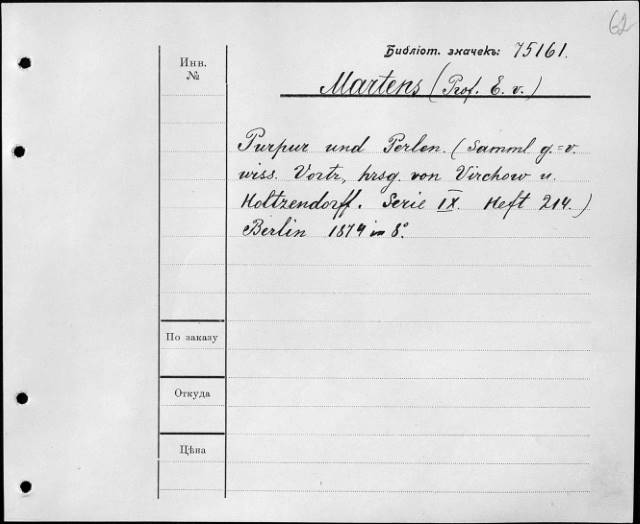 62
Библіот. значекъ: 75161.
Инв.
№
Martens (Prof. E. v.)
Purpur und Perlen. (Samml g.=v.
wiss. Vortr, hrsg. von Virchow u.
Holtzendorff. Serie IX. Heft 214.)
Berlin 1874 in 8°.
По заказу
Откуда
Цѣна